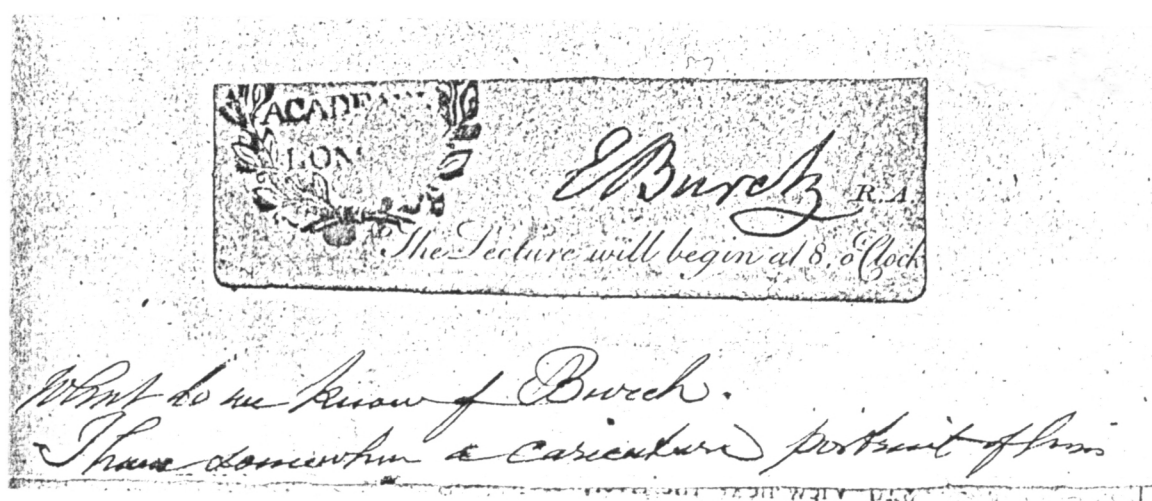 ACADEMY
LON
E Burch R.A.
The Lecture will begin at 8, o'Clock
What do we know of Burch.
I have somewhere a caricature portrait of him